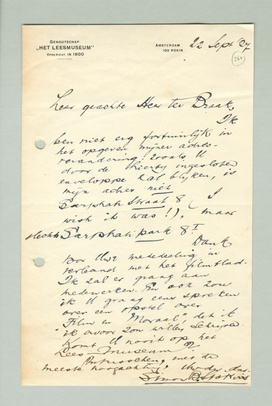 GENOOTSCHAP
„HET LEESMUSEUM"
OPGERICHT IN 1800
AMSTERDAM
102 ROKIN
22 Sept 37
Zeer geachte Heer ter Braak,
Ik
ben niet erg fortuinlijk in
het opgeven mijner adres-
verandering! zooals U
door de hierbij ingesloten
enveloppe zal blijken, is
mijn adres niet
Sarphati Straat 8 (I
wish it was!), maar
slechts Sarphati park 8 I
Dank
voor Uwe mededeeling in
verband met het Filmblad.
Ik zal er graag aan
medewerken. En ook zou
ik U graag eens spreken
over een opstel over
Film en "Moraal", dat ik
ervoor zou willen schrijven.
Komt U nooit op het
Lees-museum?
met de
meeste hoogachting,
Simon